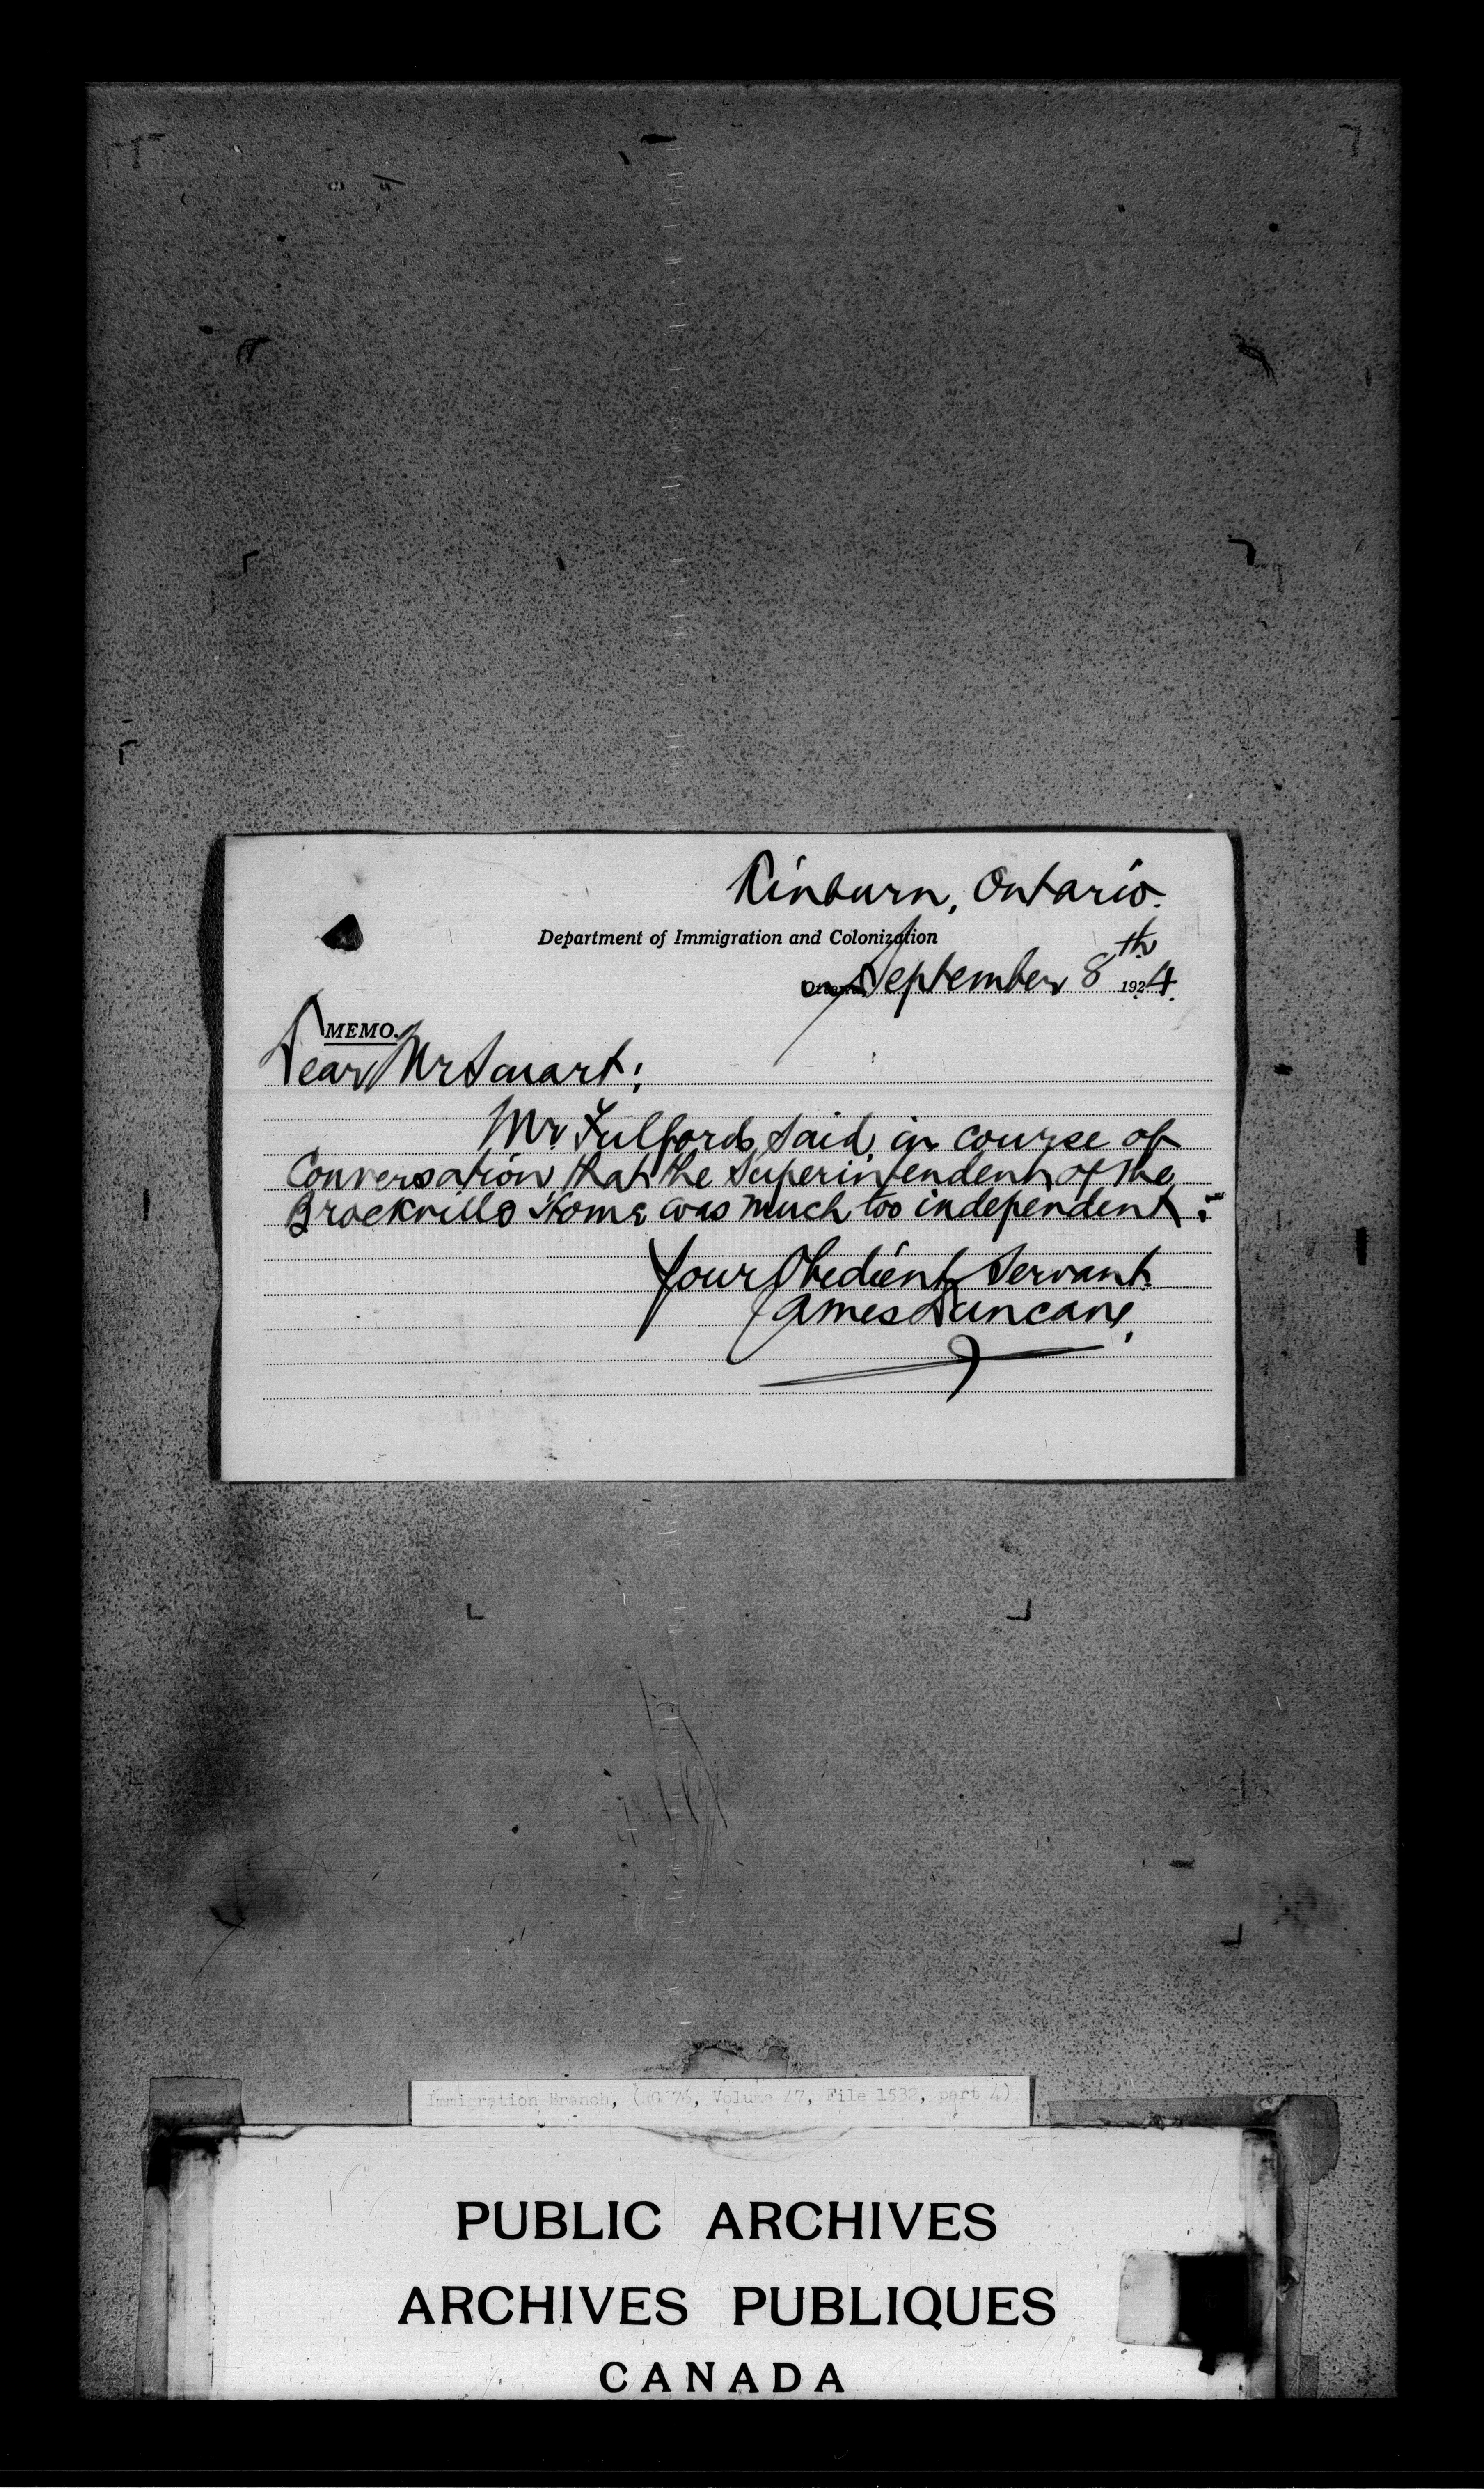 Kinburn, Ontario.
Department of Immigration and Colonization
Ottawa, September 8th 1924.
MEMO.
Dear Mr Smart;
Mr Fulford, said, in course of
Conversation, that the Superintendent of the
Brockville Home was much too independent:-
Your Obedient Servant.
James Duncan,
Immigration Branch, (RG 76, Volume 47, File 1532, part 4)
PUBLIC ARCHIVES
ARCHIVES PUBLIQUES
CANADA